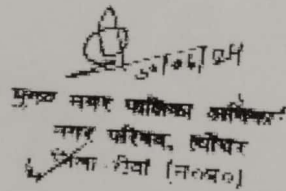 मुख्य नगर पालिका अधिकारी
नगर परिषद, त्योंथर
जिला रीवां (म०प्र०)